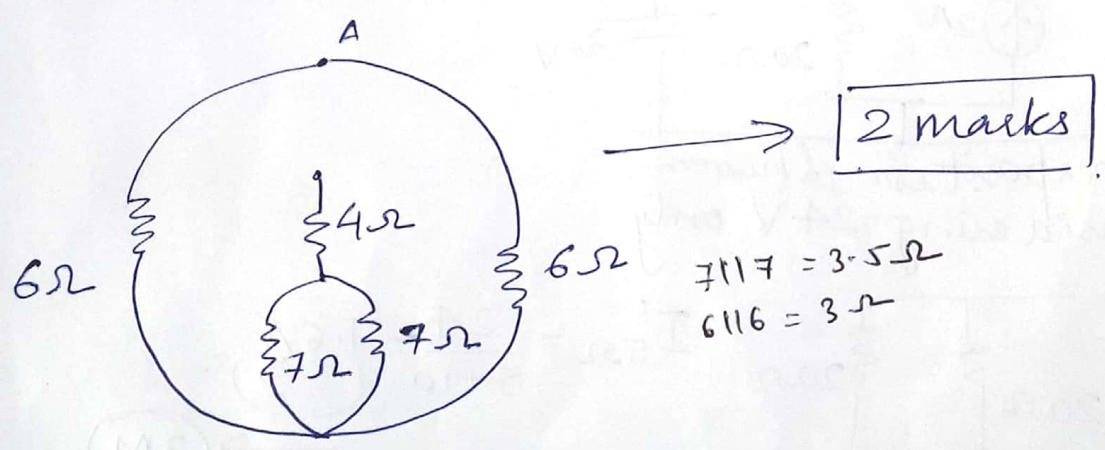 A
2 marks
4Ω
6Ω
6Ω
7Ω
7Ω
7||7 = 3.5Ω
6||6 = 3Ω